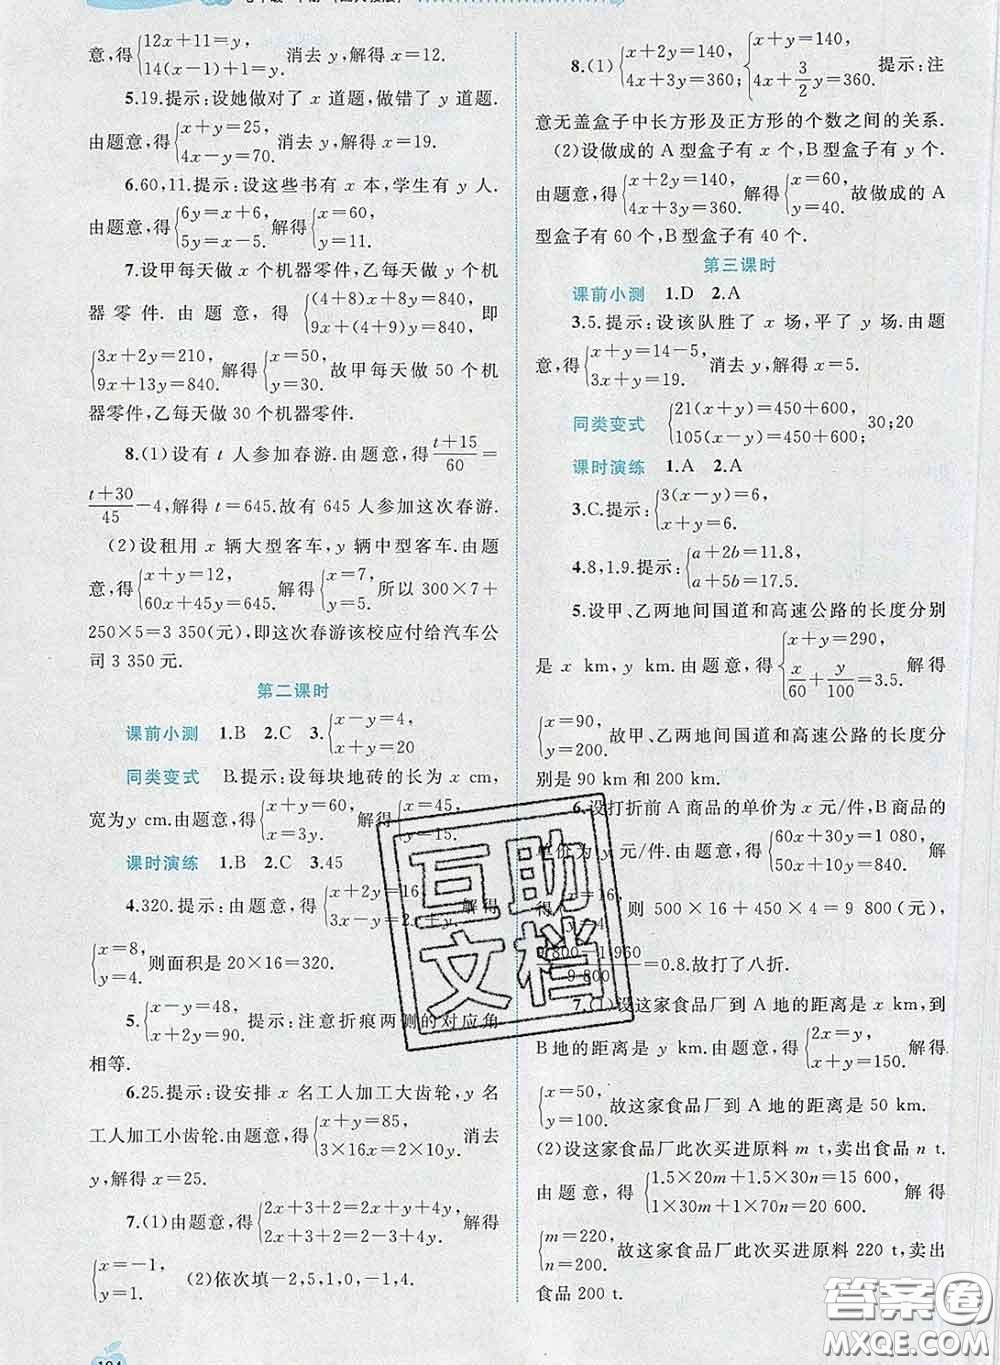 意,得{12x+11=y, 14(x-1)+1=y. 消去 y,得 x=12.
5.19.提示:设她做对了 x 道题,做错了 y 道题.
由题意,得{x+y=25, 4x-y=70. 消去 y,得 x=19.
6.60,11.提示:设这些书有 x 本,学生有 y 人.
由题意,得{6y=x+6, 5y=x-5. 解得{x=60, y=11.
7.设甲每天做 x 个机器零件,乙每天做 y 个机
器零件.由题意,得{(4+8)x+8y=840, 9x+(4+9)y=840, 即
{3x+2y=210, 9x+13y=840. 解得{x=50, y=30. 故甲每天做 50 个机
器零件,乙每天做 30 个机器零件.
8.(1)设有 t 人参加春游.由题意,得(t+15)/60=
(t+30)/45-4,解得 t=645.故有 645 人参加这次春游.
(2)设租用 x 辆大型客车,y 辆中型客车.由题
意,得{x+y=12, 60x+45y=645. 解得{x=7, y=5. 所以 300×7+
250×5=3 350(元),即这次春游该校应付给汽车公
司 3 350 元.
第二课时
课前小测 1.B 2.C 3.{x-y=4, x+y=20
同类变式 B.提示:设每块地砖的长为 x cm,
宽为y cm.由题意,得{x+y=60, x=3y. 解得{x=45, y=15.
课时演练 1.B 2.C 3.45
4.320.提示:由题意,得{x+2y=16, 3x-y=2x+y. 解得
{x=8, y=4. 则面积是 20×16=320.
5.{x-y=48, x+2y=90 提示:注意折痕两侧的对应角
相等.
6.25.提示:设安排 x 名工人加工大齿轮,y 名
工人加工小齿轮.由题意,得{x+y=85, 3×16x=2×10y. 消去
y,解得 x=25.
7.(1)由题意,得{2x+3+2=2x+y+4y, 2x+3+2=2-3+4y. 解得
{x=-1, y=1. (2)依次填-2,5,1,0,-1,4.
8.(1){x+2y=140, 4x+3y=360; {x+y=140, 4x+3/2 y=360. 提示:注
意无盖盒子中长方形及正方形的个数之间的关系.
(2)设做成的 A 型盒子有 x 个,B型盒子有 y 个.
由题意,得{x+2y=140, 4x+3y=360. 解得{x=60, y=40. 故做成的 A
型盒子有 60 个,B 型盒子有 40 个.
第三课时
课前小测 1.D 2.A
3.5.提示:设该队胜了 x 场,平了 y 场.由题
意,得{x+y=14-5, 3x+y=19. 消去 y,解得 x=5.
同类变式 {21(x+y)=450+600, 105(x-y)=450+600; 30;20
课时演练 1.A 2.A
3.C.提示:{3(x-y)=6, x+y=6.
4.8,1.9.提示:{a+2b=11.8, a+5b=17.5.
5.设甲、乙两地间国道和高速公路的长度分别
是 x km,y km.由题意,得{x+y=290, x/60+y/100=3.5. 解得
{x=90, y=200. 故甲、乙两地间国道和高速公路的长度分
别是 90 km 和 200 km.
6.设打折前 A 商品的单价为 x 元/件,B 商品的
单价为 y 元/件.由题意,得{60x+30y=1 080, 50x+10y=840. 解
得{x=16, y=4. 则 500×16+450×4=9 800(元),
(9 800-1 960)/9 800=0.8.故打了八折.
7.(1)设这家食品厂到 A 地的距离是 x km,到
B地的距离是 y km.由题意,得{2x=y, x+y=150. 解得
{x=50, y=100. 故这家食品厂到 A 地的距离是 50 km.
(2)设这家食品厂此次买进原料 m t,卖出食品 n t.
由题意,得{1.5×20m+1.5×30n=15 600, 1×30m+1×70n=20 600. 解得
{m=220, n=200. 故这家食品厂此次买进原料 220 t,卖出
食品 200 t.
互助
文档
答案圈
MXQE.COM